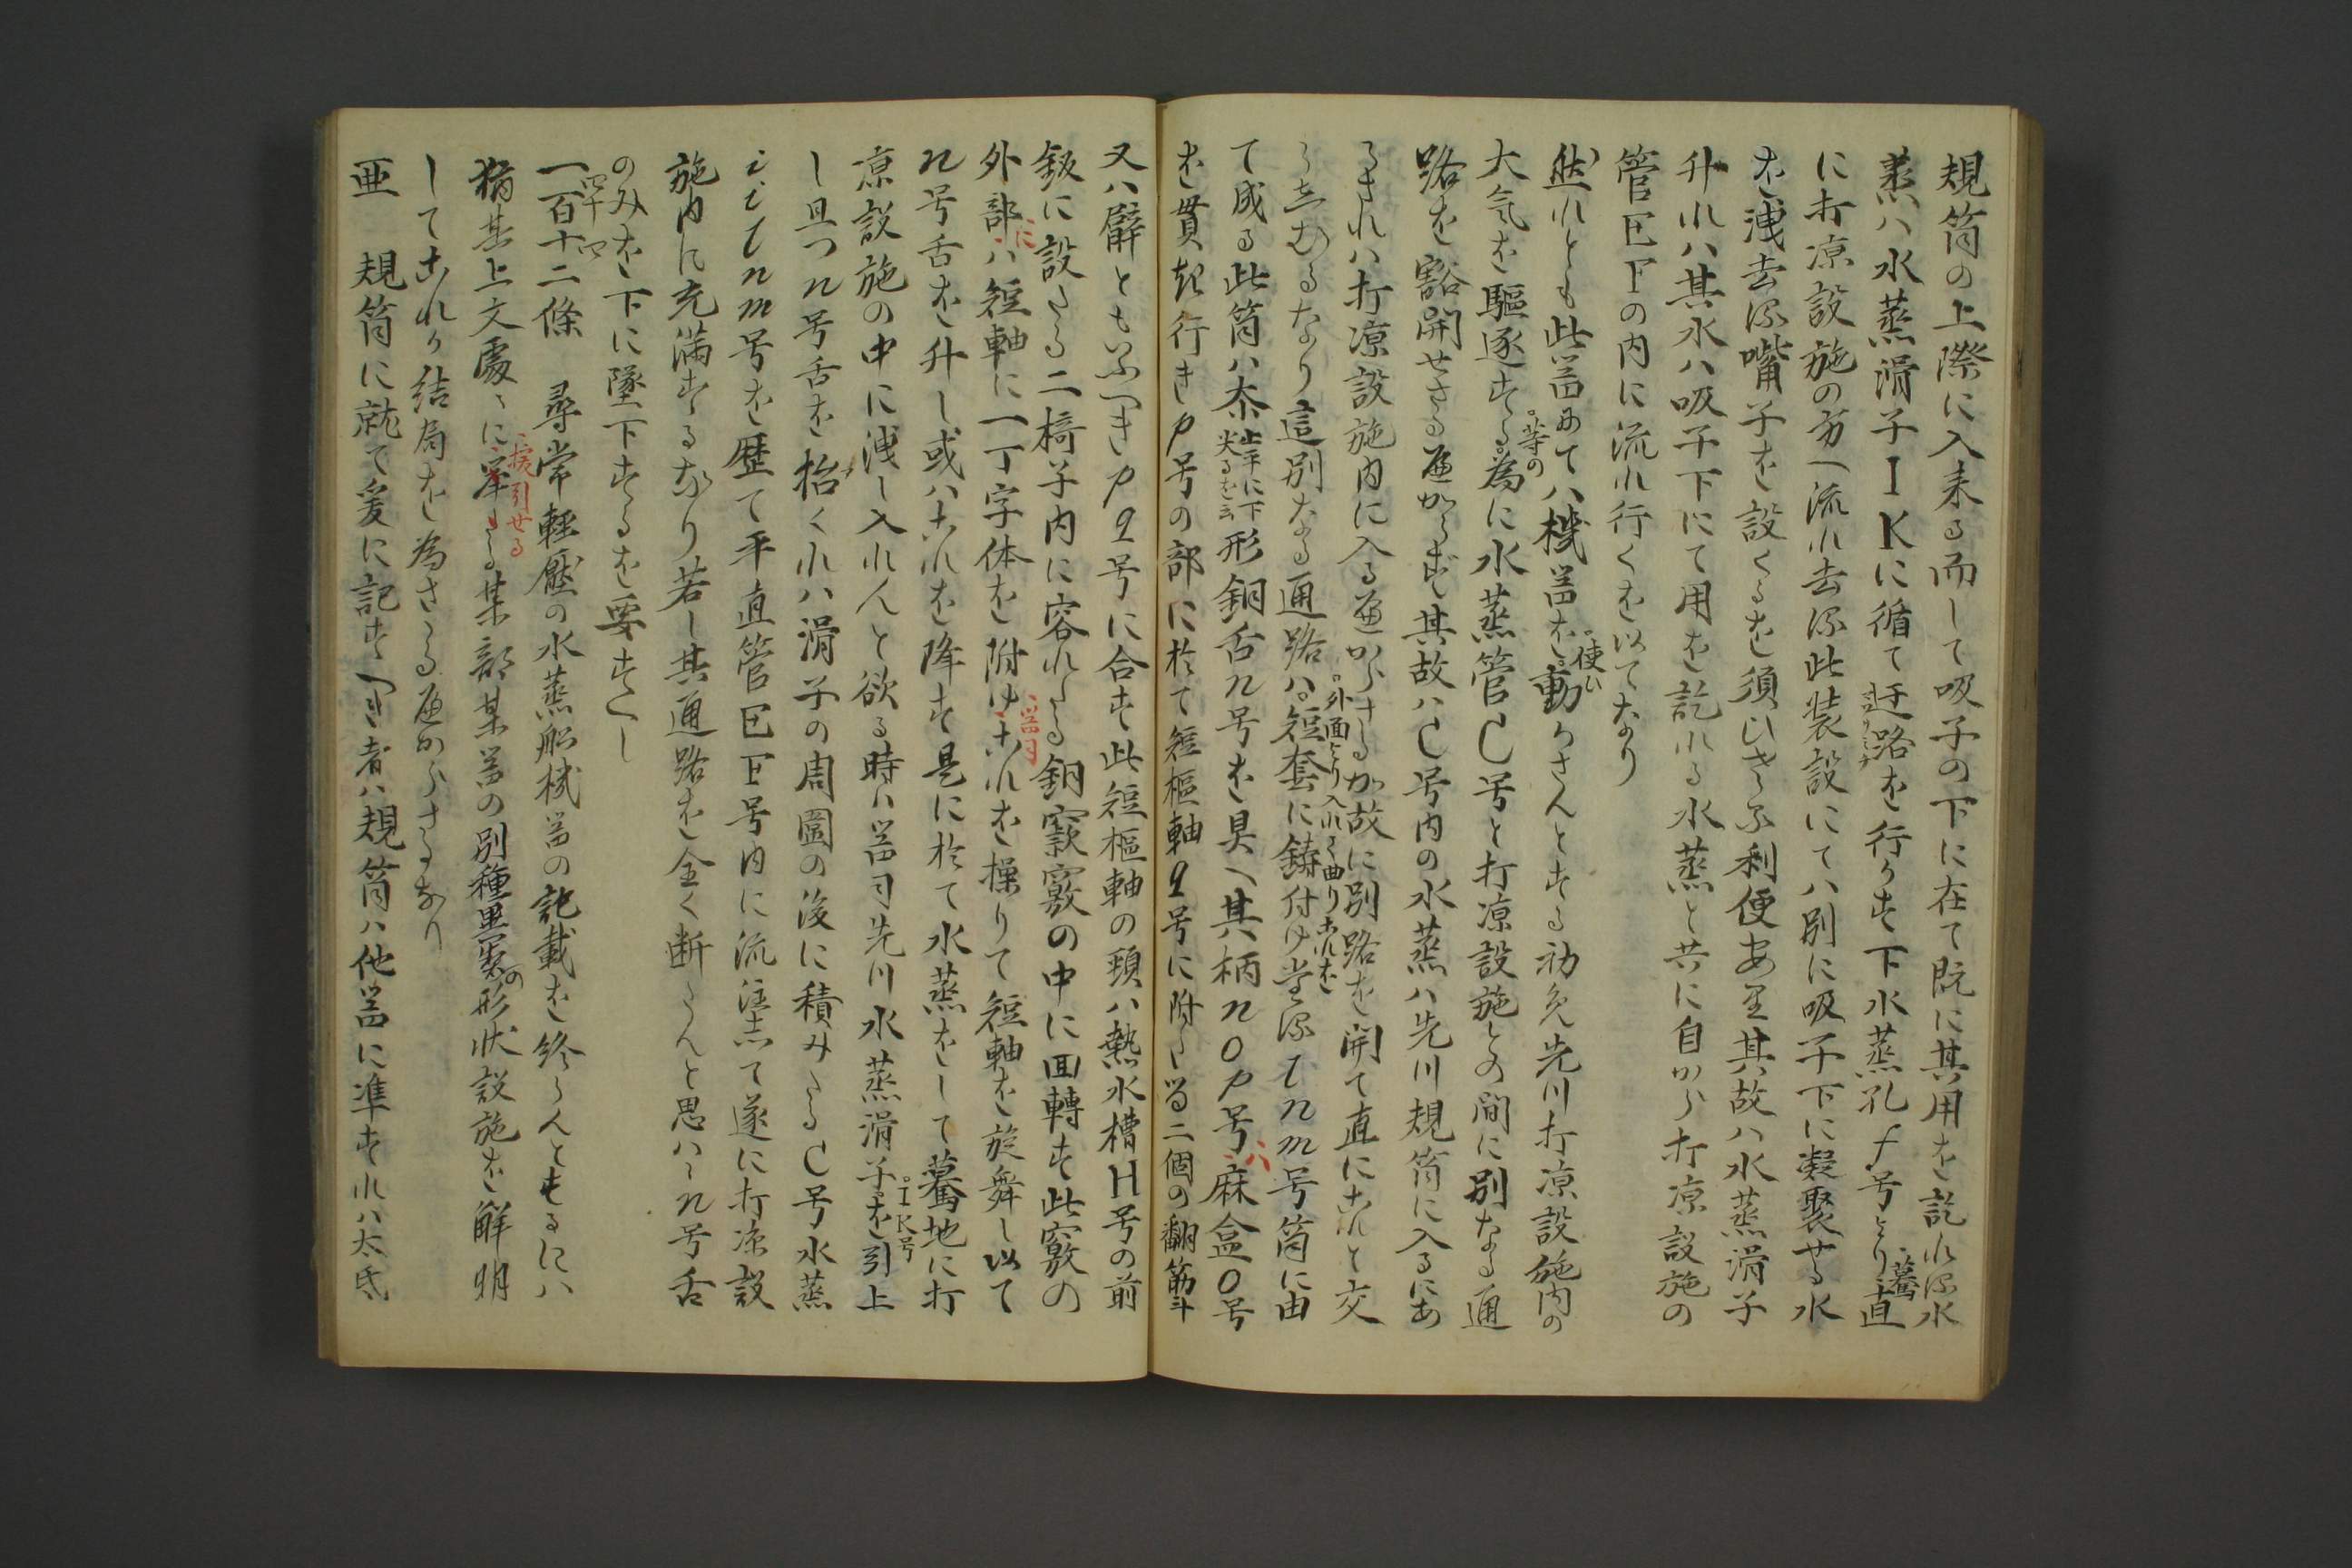 規筒の上際に入来る而して吸子の下に在て既に其用を訖れる水
蒸ハ水蒸滑子IKに循て迂路を行かす下水蒸孔f号より驀直
に打凉設施の方へ流れ去る此装設にてハ別に吸子下に凝聚せる水
を洩去る嘴子を設くるを須ひさる利便あり其故ハ水蒸滑子
升れハ其水ハ吸子下にて用を訖れる水蒸と共に自から打凉設施の
管EFの内に流れ行くを以てなり
然れとも此器等のあてハ機器を使ひ動かさんとする初め先川打凉設施内の
大気を驅逐する為に水蒸管C号と打凉設施との間に別なる通
路を豁開せさるへからず其故ハC号内の水蒸ハ先川規筒に入るにあ
らされハ打凉設施内に入るへからさるか故に別路を開て直にこれと交
らしむるなり這別なる通路ハ外面より入れて曲りこれを短套に鋳付け在るlnm号筒に由
て成る此筒ハ上平に下尖るを云形銅舌n号を具へ其柄nop号ハ麻盒o号
を貫き行きp号の部に於て短樞軸q号に附たる二個の翻筋斗
又ハ臂ともいふへきpq号に合す此短樞軸の頸ハ熱水槽H号の前
鈑に設たる二椅子内に容れたる銅窾竅の中に回轉す此竅の
外部にハ短軸に一丁字体を附け器司これを操りて短軸を旋舞し以て
n号舌を升し或ハこれを降す是に於て水蒸をして驀地に打
凉設施の中に洩し入れんと欲る時ハ器司先川水蒸滑子IK号を引上
し且つn号舌を抬くれハ滑子の周圍の後に積みたるC号水蒸
i i l n m号を歴て平直管EF号内に流注して遂に打凉設
施内に充満するなり若し其通路を全く断たんと思ハヽn号舌
のみを下に墜下するを要すへし
一百四十二條 尋常軽壓の水蒸舩機器の記載を終らんとするにハ
猶其上文處々に援引せる某部某器の別種異製の形状設施を解明
してこれか結局を為さゝるへからさるなり
亜 規筒に就て爰に記すへき者ハ規筒ハ他器に準すれハ太氐